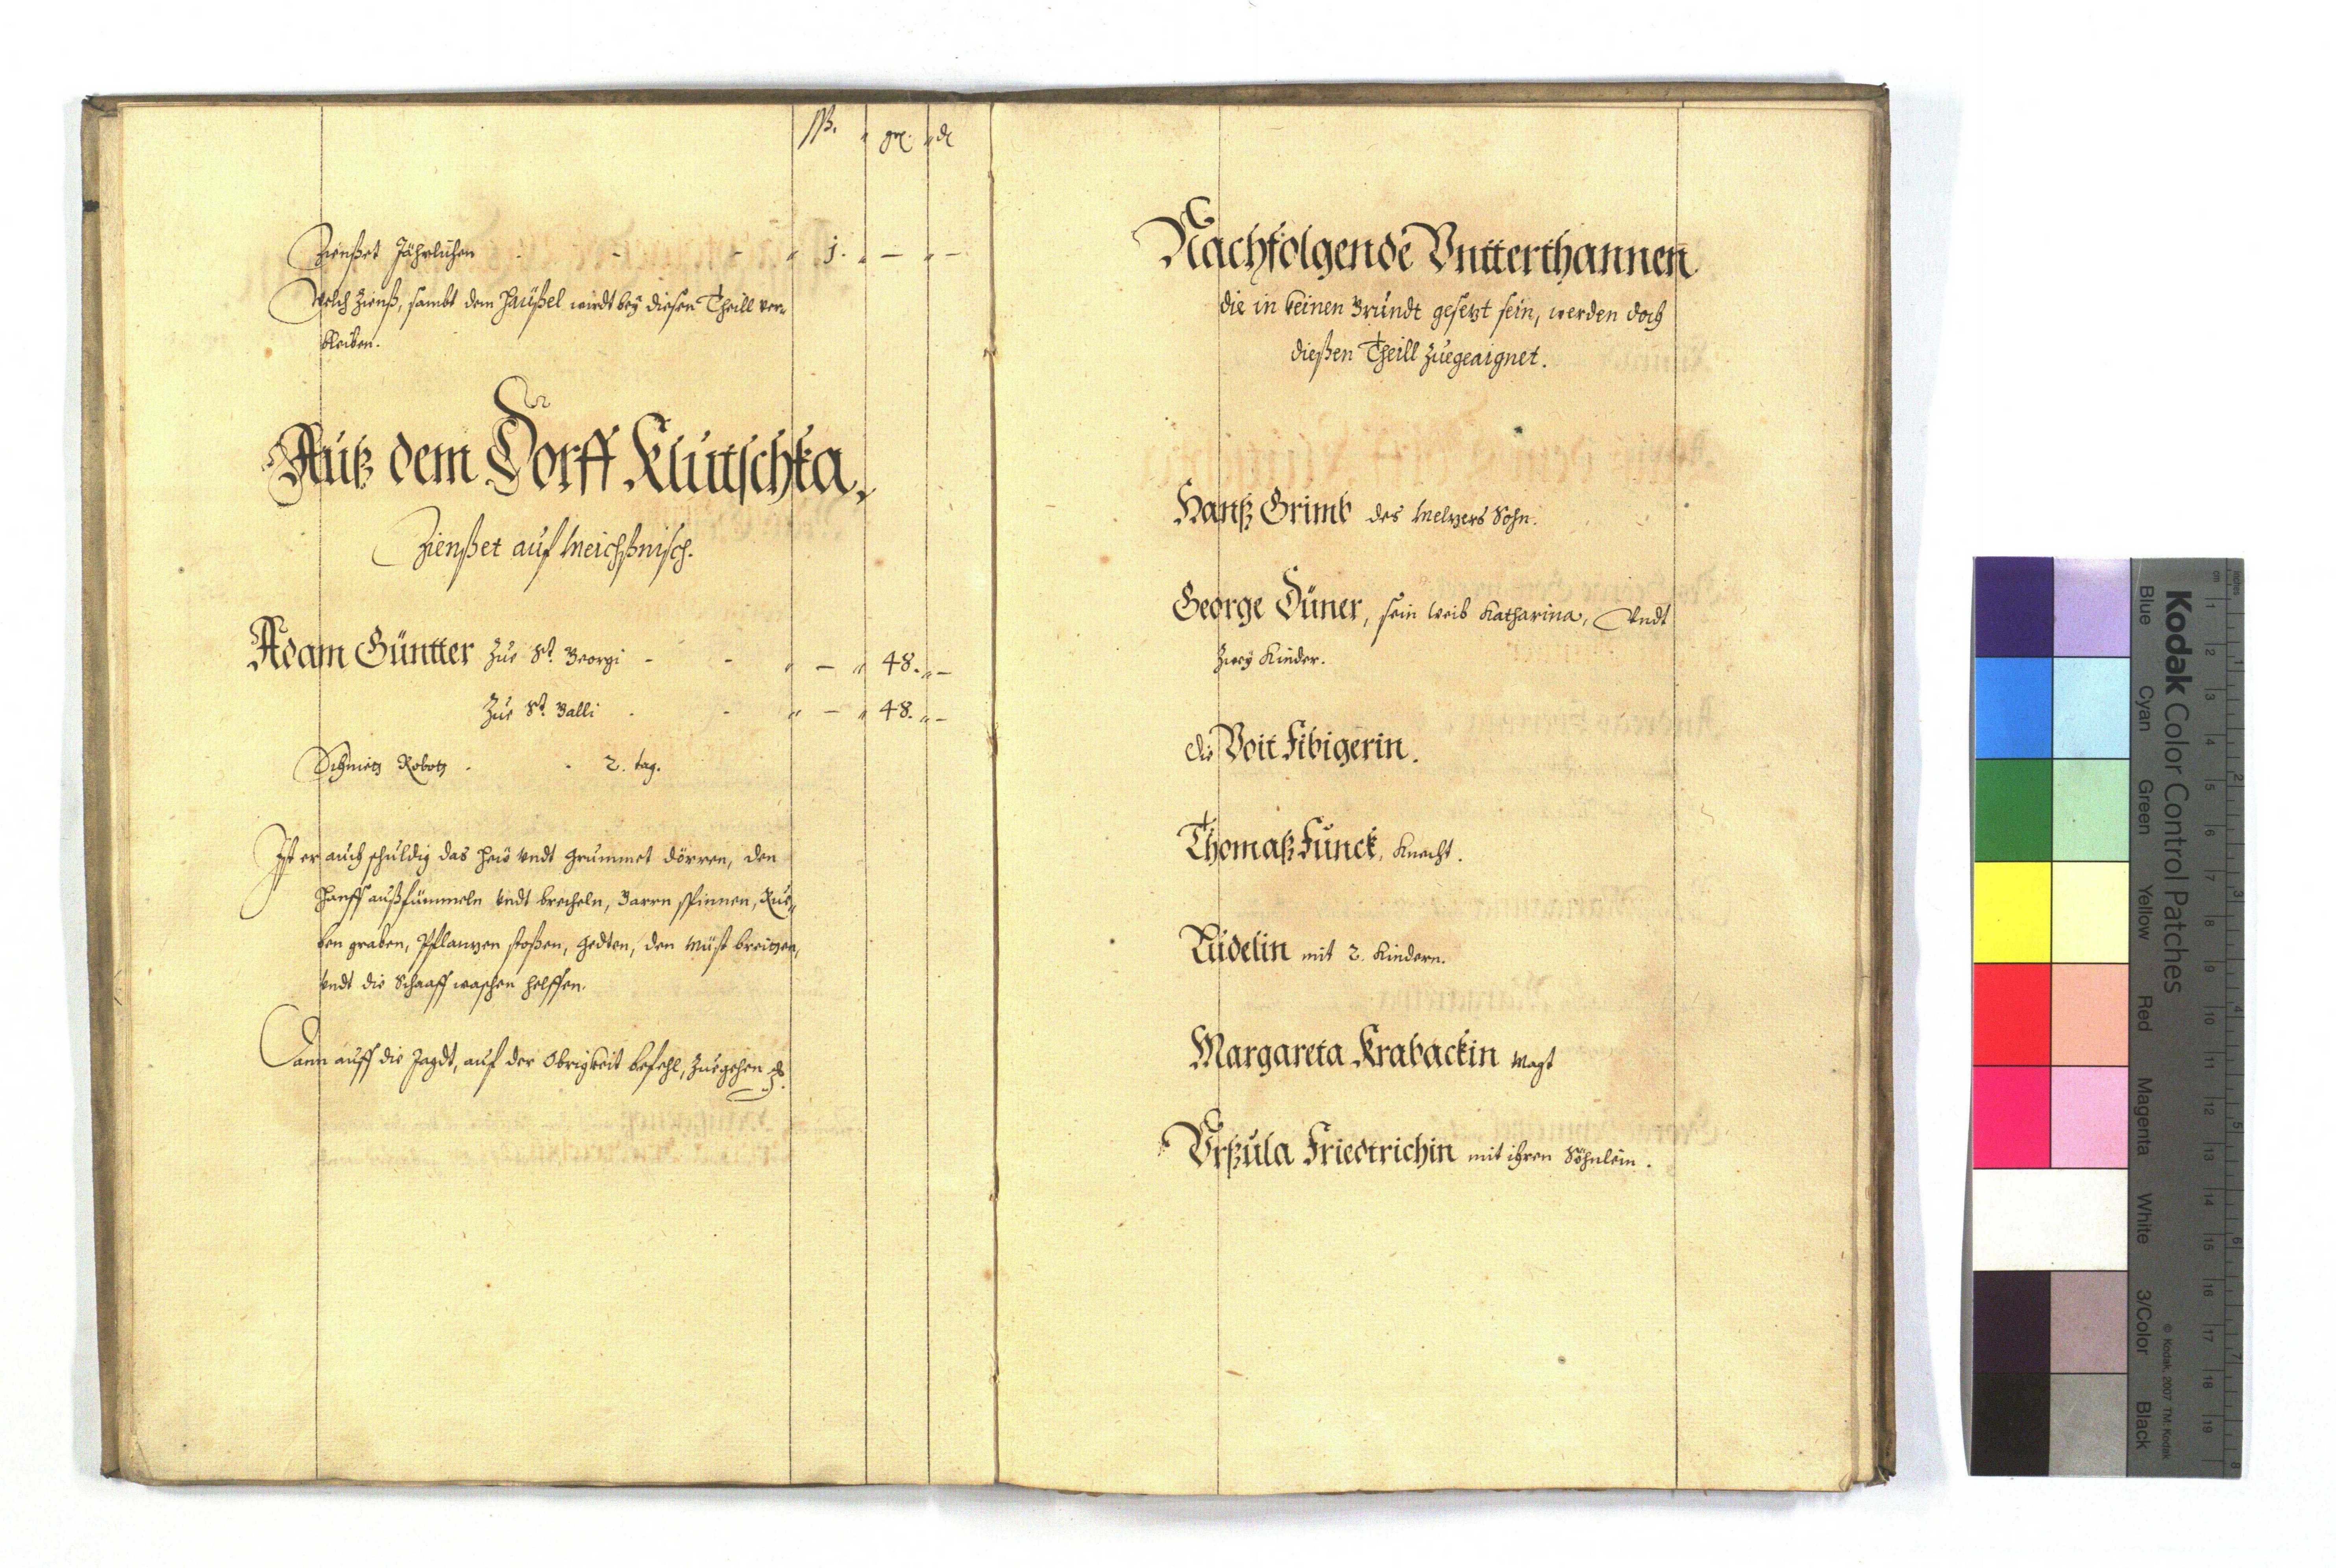 ßß. gr. d
Zienßet Jährlichen - - - 1. - -
Welch Zienß, sambt dem Heüßel wirdt bey diesen Theill ver-
bleiben.
Auß dem Dorff Kluttschka.
Zienßet auf Meichßnisch.
Adam Güntter Zue St. Georgi - - - 48. -
Zue St. Galli - - - 48. -
Schnietz Robotz - - 2. tag.
Ist er auch schuldig das Heü vndt Grummet dörren, den
Hanff außfümmeln vndt brecheln, Garn spinnen, Rue-
ben graben, Pflantzen stoßen, Gedten, den Müst breitten,
vndt die Schaaff waschen helffen.
Dann auff die Jagdt, auf der Obrigkeit befehl, Zuegehen
Nachfolgende Vntterthannen
die in keinen Gründt gesetzt sein, werden doch
dießen Theill Zuegeaignet.
Hanß Grimb des Melzers Sohn.
George Düner, sein Weib Katharina, Vndt
Zwey Kinder.
die Voit Fibigerin.
Thomaß Funck, Knecht.
Rudelin mit 2. Kindern.
Margareta Krabackin Magt
Vrßula Friedtrichin mit ihren Söhnlein.
Kodak Color Control Patches
Blue Cyan Green Yellow Red Magenta White 3/Color Black
© Kodak, 2007 TM: Kodak
inches 1 2 3 4 5 6 7 8
cm 1 2 3 4 5 6 7 8 9 10 11 12 13 14 15 16 17 18 19